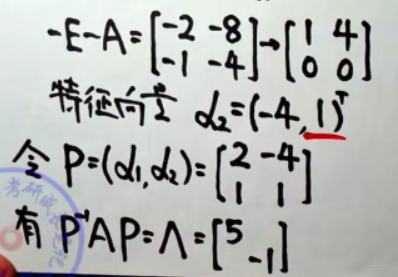 -E-A=[-2 -8; -1 -4]→[1 4; 0 0]
特征向量 α₂=(-4,1)ᵀ
令 P=(α₁,α₂)=[2 -4; 1 1]
有 P⁻¹AP=Λ=[5 ; -1]
考研